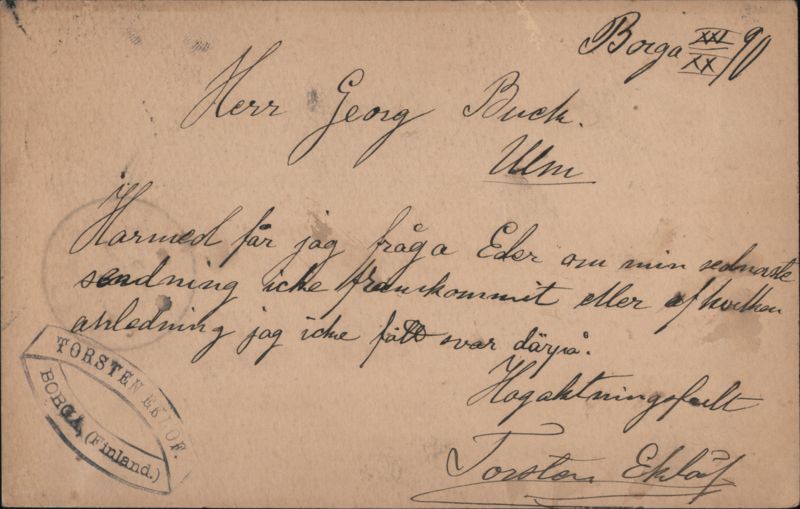 Borga XXI/XX 90
Herr Georg Buck.
Ulm
Härmed får jag fråga Eder om min sednaste
sendning icke framkommit eller af hvilken
anledning jag icke fått svar därpå.
Högaktningsfult
Torsten Eklöf
TORSTEN EKLÖF.
BORGÅ, (Finland.)